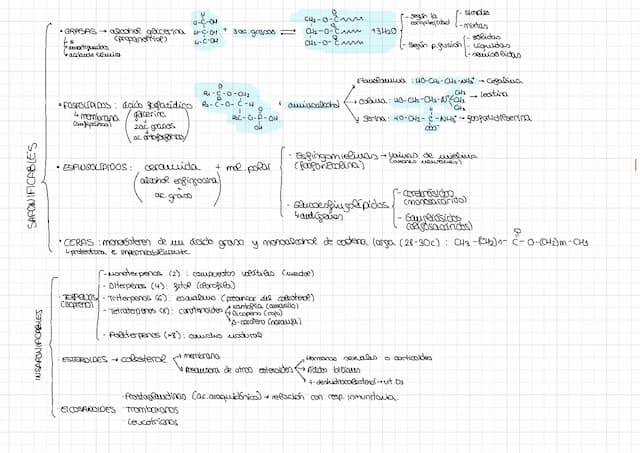 SAPONIFICABLES
• GRASAS → alcohol glicerina (propanotriol) + 3ac. grasos ⇌ + 3H₂O
H
H-C-OH
H-C-OH
H-C-OH
CH₂-O-C
CH-O-C
CH₂-O-C
O
- según la complejidad
- simples
- mixtas
- según p.fusión
- sólidas
- líquidas
- semisólidas
• FOSFOLÍPIDOS: ácido fosfatídico + aminoalcohol
↳ membrana (anfipáticos)
(glicerina + 2ac grasos + ac ortofosfórico)
R₁-C-O-CH₂
R₂-C-O-C-H
H₂C-O-P-OH
OH
Etanolamina: HO-CH₂-CH₂-NH₃⁺ → Cefalina
colina: HO-CH₂-CH₂-N⁺ CH₃ CH₃ CH₃ → lecitina
Serina: HO-CH₂-C-NH₃⁺ → fosfatidilserina
COO⁻
• ESFINGOLÍPIDOS: ceramida + mol. polar
(alcohol esfingosina + ac. graso)
- Esfingomielinas → vainas de mielina
(fosforilcolina)
- Glucoesfingolípidos
↳ antígenos
- cerebrósidos (monosacárido)
- Gangliósidos (oligosacáridos)
• CERAS: monoésteres de un ácido graso y monoalcohol de cadena larga (28-30c) : CH₃-(CH₂)n-C-O-(CH₂)m-CH₃
↳ protectora e impermeabilizante
INSAPONIFICABLES
TERPENOS (isopreno)
- Monoterpenos (2): compuestos volátiles (mentol)
- Diterpenos (4): fitol (clorofila)
- Triterpenos (6): escualeno (precursor del colesterol)
- Tetraterpenos (8): carotenoides
xantofila (amarillo)
licopeno (rojo)
β-caroteno (naranja)
- Politerpenos (>8): caucho natural
ESTEROIDES → colesterol
membrana
Precursora de otros esteroides
Hormonas sexuales o corticoides
Ácidos biliares
7-deshidrocolesterol → vit. D₃
EICOSANOIDES
- Prostaglandinas (ac. araquidónico) → relación con resp. inmunitaria.
Tromboxanos
- Leucotrienos